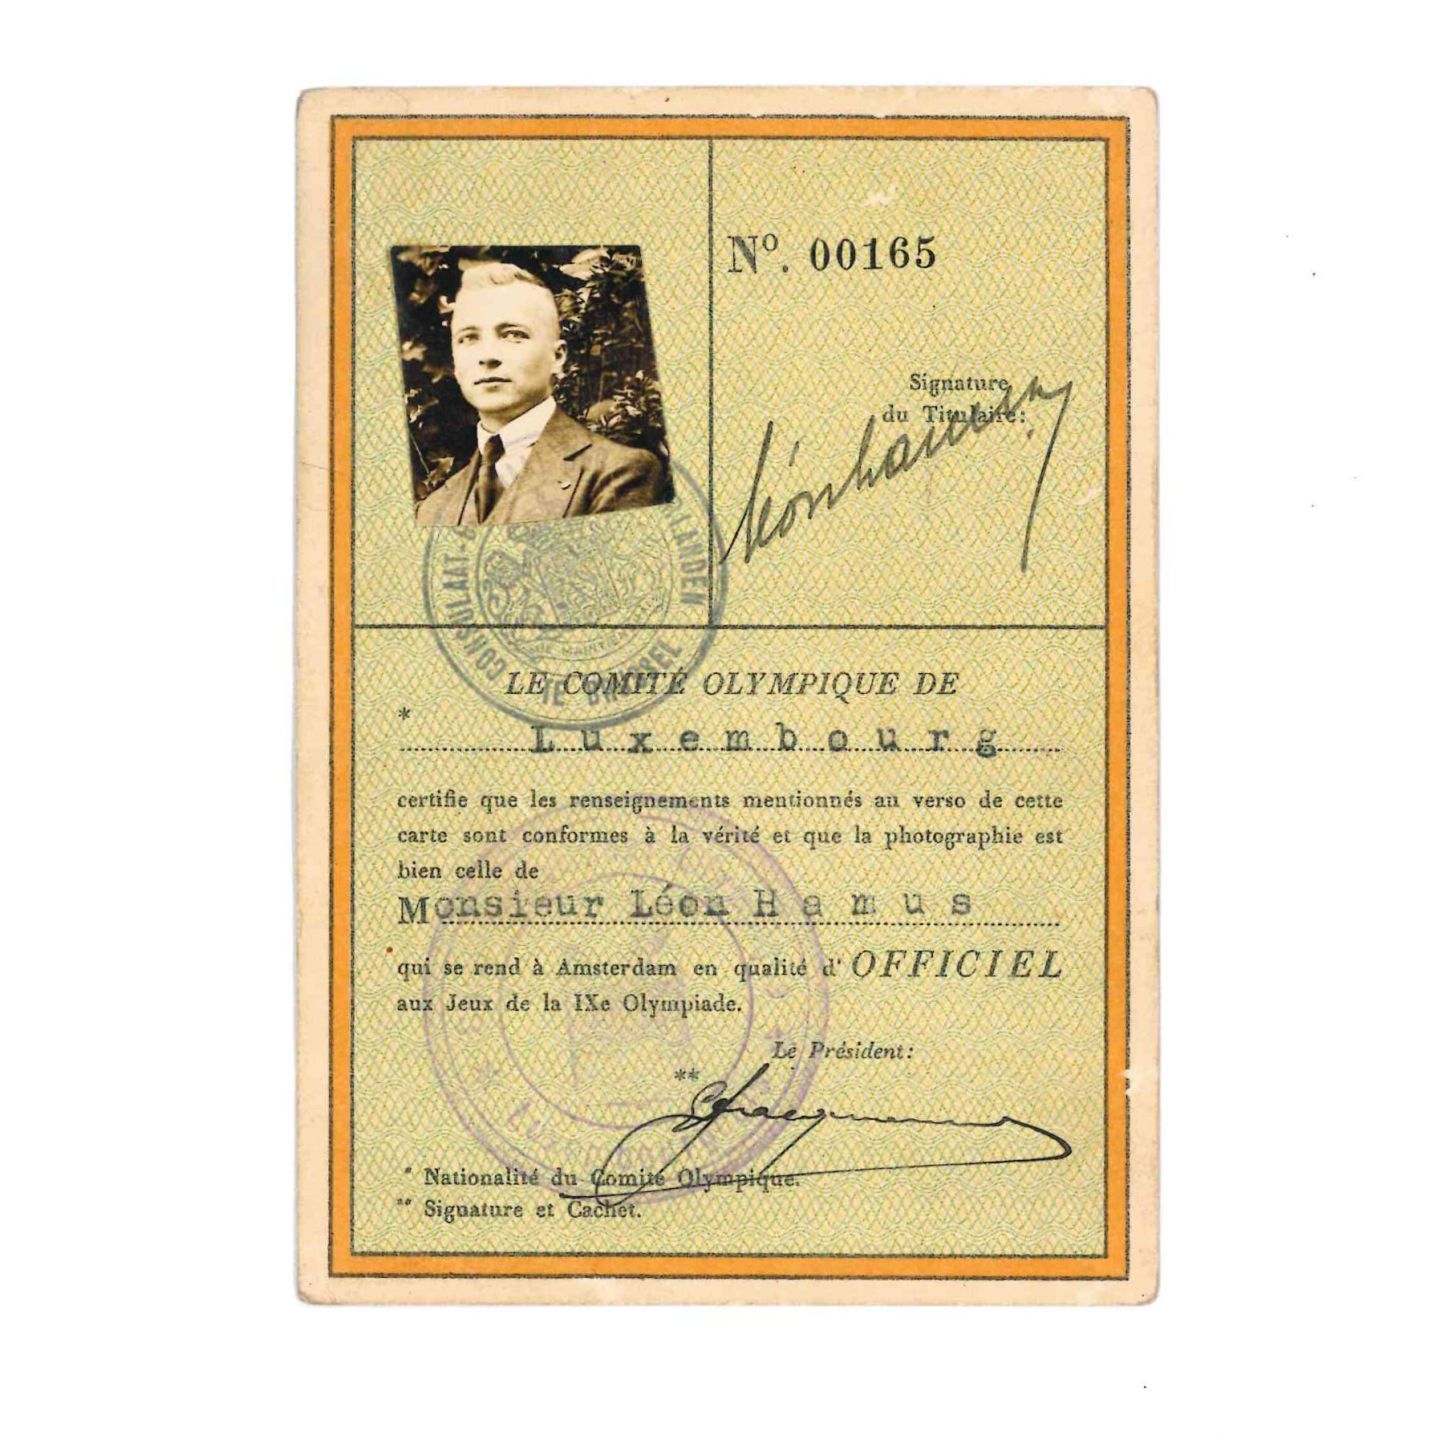 Nº. 00165
Signature
du Titulaire:
CONSULAAT-
LANDEN
TE BRUSSEL
LE COMITÉ OLYMPIQUE DE
*
Luxembourg
certifie que les renseignements mentionnés au verso de cette
carte sont conformes à la vérité et que la photographie est
bien celle de
Monsieur Léon Hamus
qui se rend à Amsterdam en qualité d' OFFICIEL
aux Jeux de la IXe Olympiade.
Le Président:
**
* Nationalité du Comité Olympique.
** Signature et Cachet.